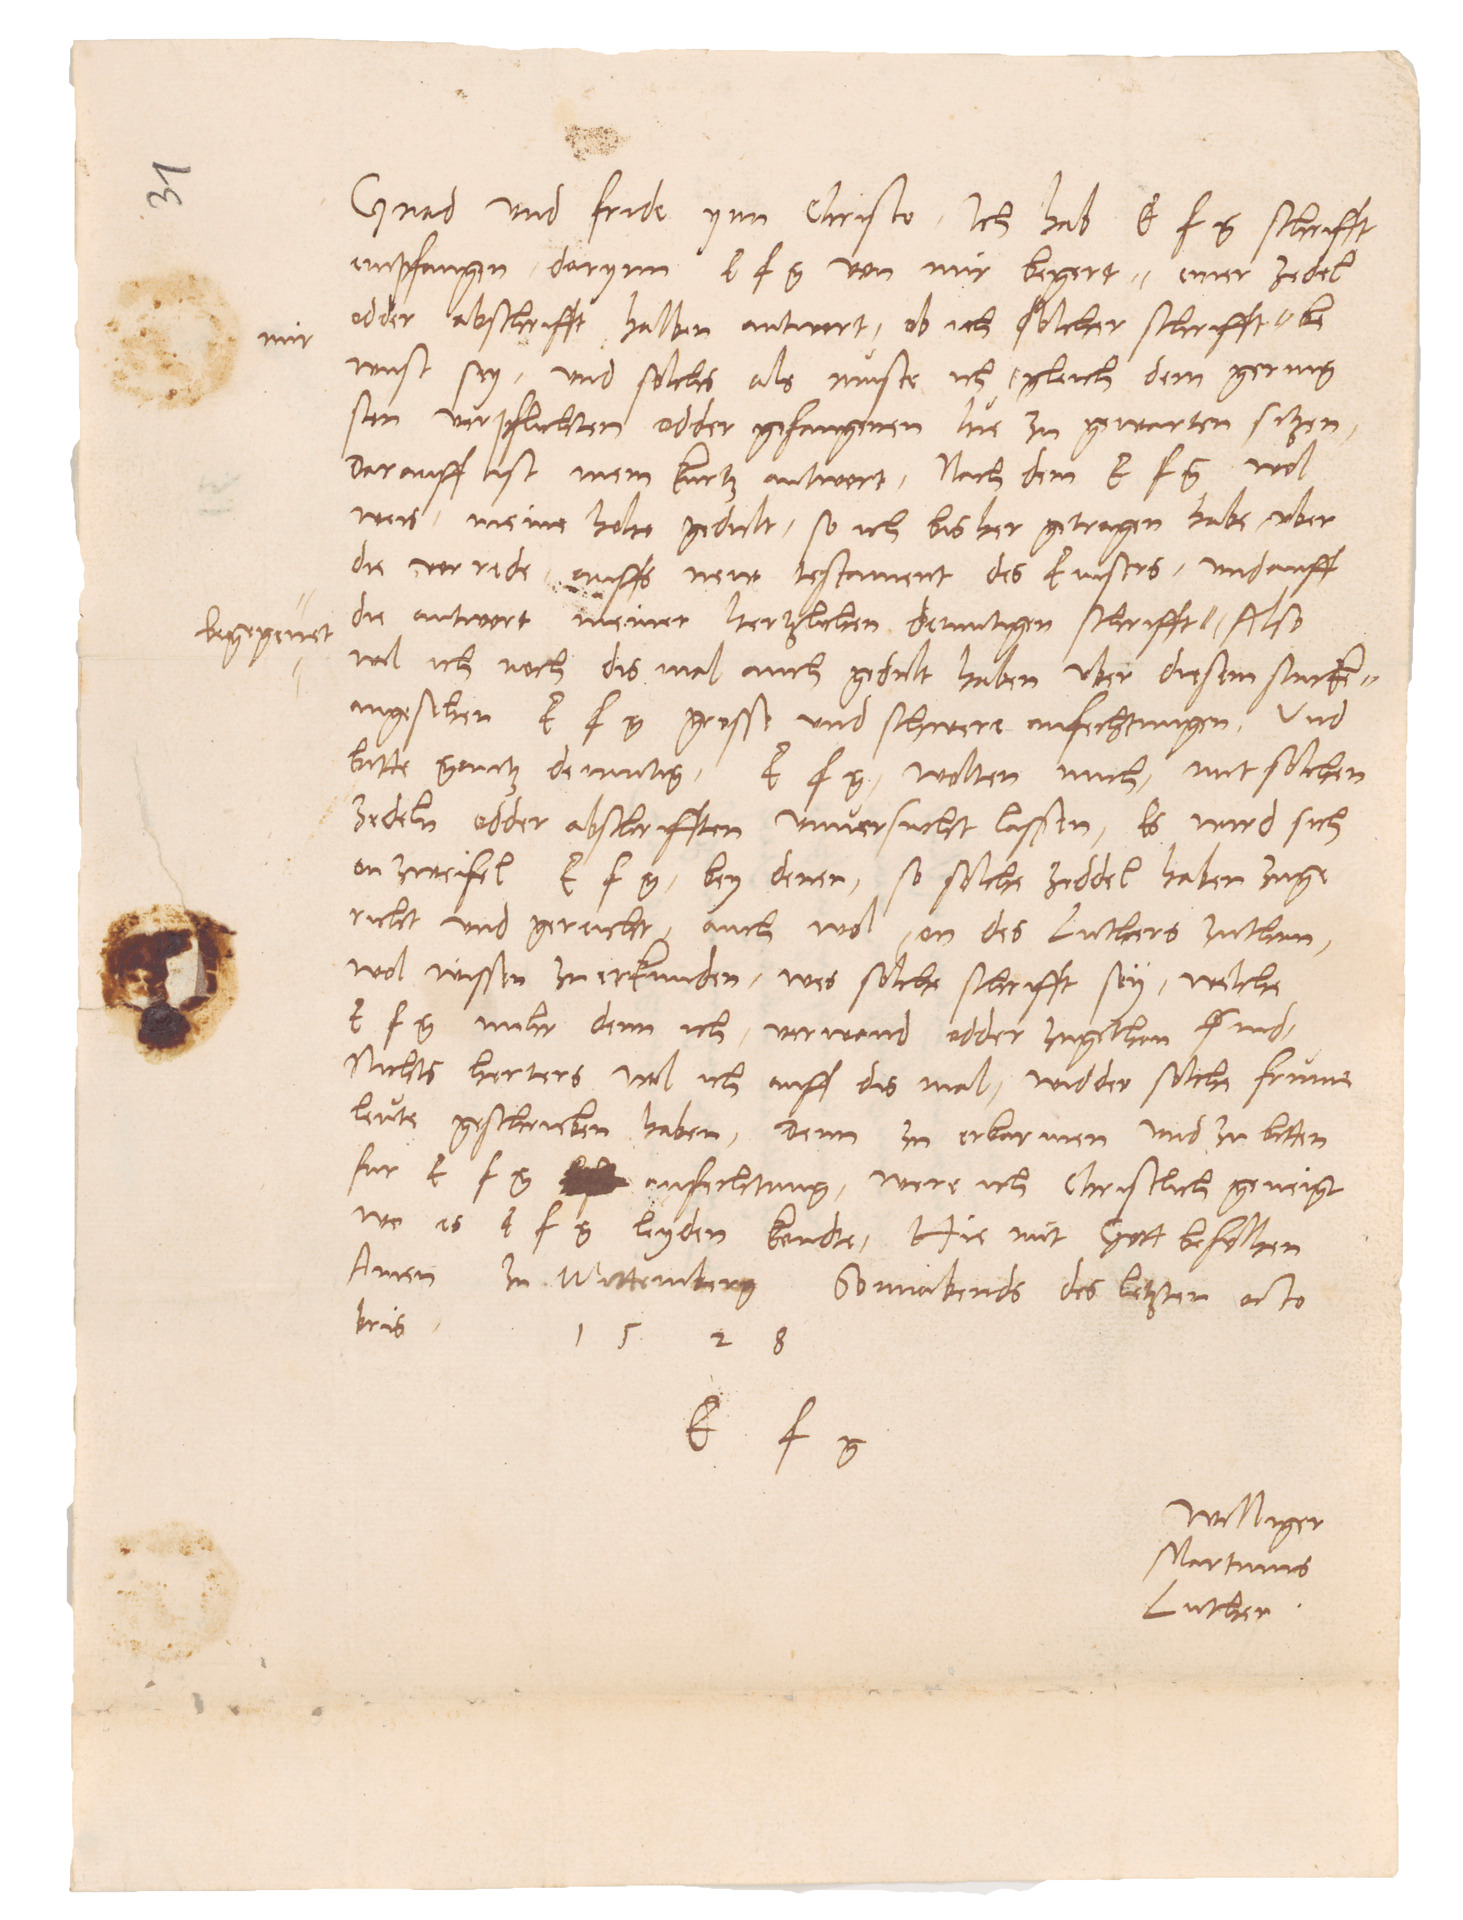 31
Gnad und fride ynn Christo, Ich hab E f g schrifft
empfangen, darynn E f g von mir begert, einer zedel
odder abschrifft halben antwort, ob ich solcher schrifft be
mir
wust sey, und solchs als muste ich gleich dem gering
sten verpflichten odder gefangenen hie zu gewarten sitzen,
Darauff ist mein kurtz antwort, Nach dem E f g wol
weis, meine hohe gedult, so ich bisher getragen habe uber
die vorrede, auffs new testament des Emsers, und auff
die antwort meiner hertzlichen demutigen schrifft, Also
begegenet
wil ich noch dis mal auch gedult haben uber diesem stucke
angesehen E f g grosse und schwere anfechtungen, Und
bitte gantz demutig, E f g, wolten mich, mit solchen
zedeln odder abschrifften unversucht lassen, Es wird sich
on zweifel E f g, bey denen, so solche zeddel haben zuge
richt und gereicht, auch wol, on des Luthers zuthun,
wol wissen zu erkunden, wes solche schrifft sey, welche
E f g mehr denn ich, verwand odder zugethan sind,
Nichts herters wil ich auff dis mal, widder solche frume
leute geschrieben haben, Denn zu erbarmen und zu bitten
fur E f g anfechtung, were ich Christlich geneigt
wo es E f g leyden kondte, Hie mit Gott befolhen
Amen Zu Wittemberg Sonnabends des letzten octo
bris, 1 5 2 8
E f g
Williger
Martinus
Luther